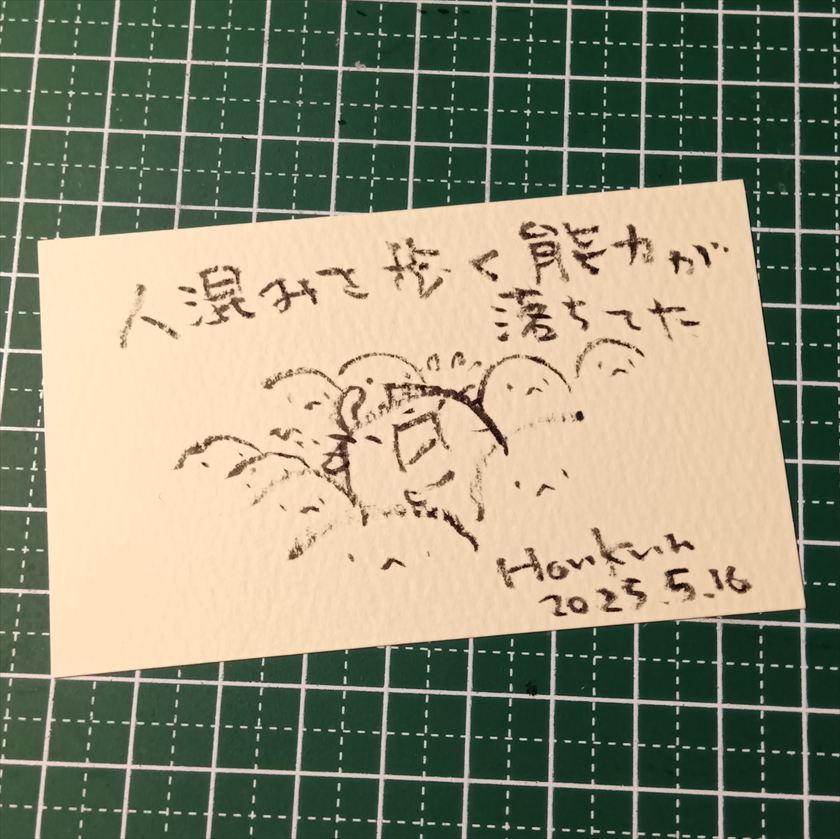 人混みを歩く能力が
落ちてた
2025.5.16